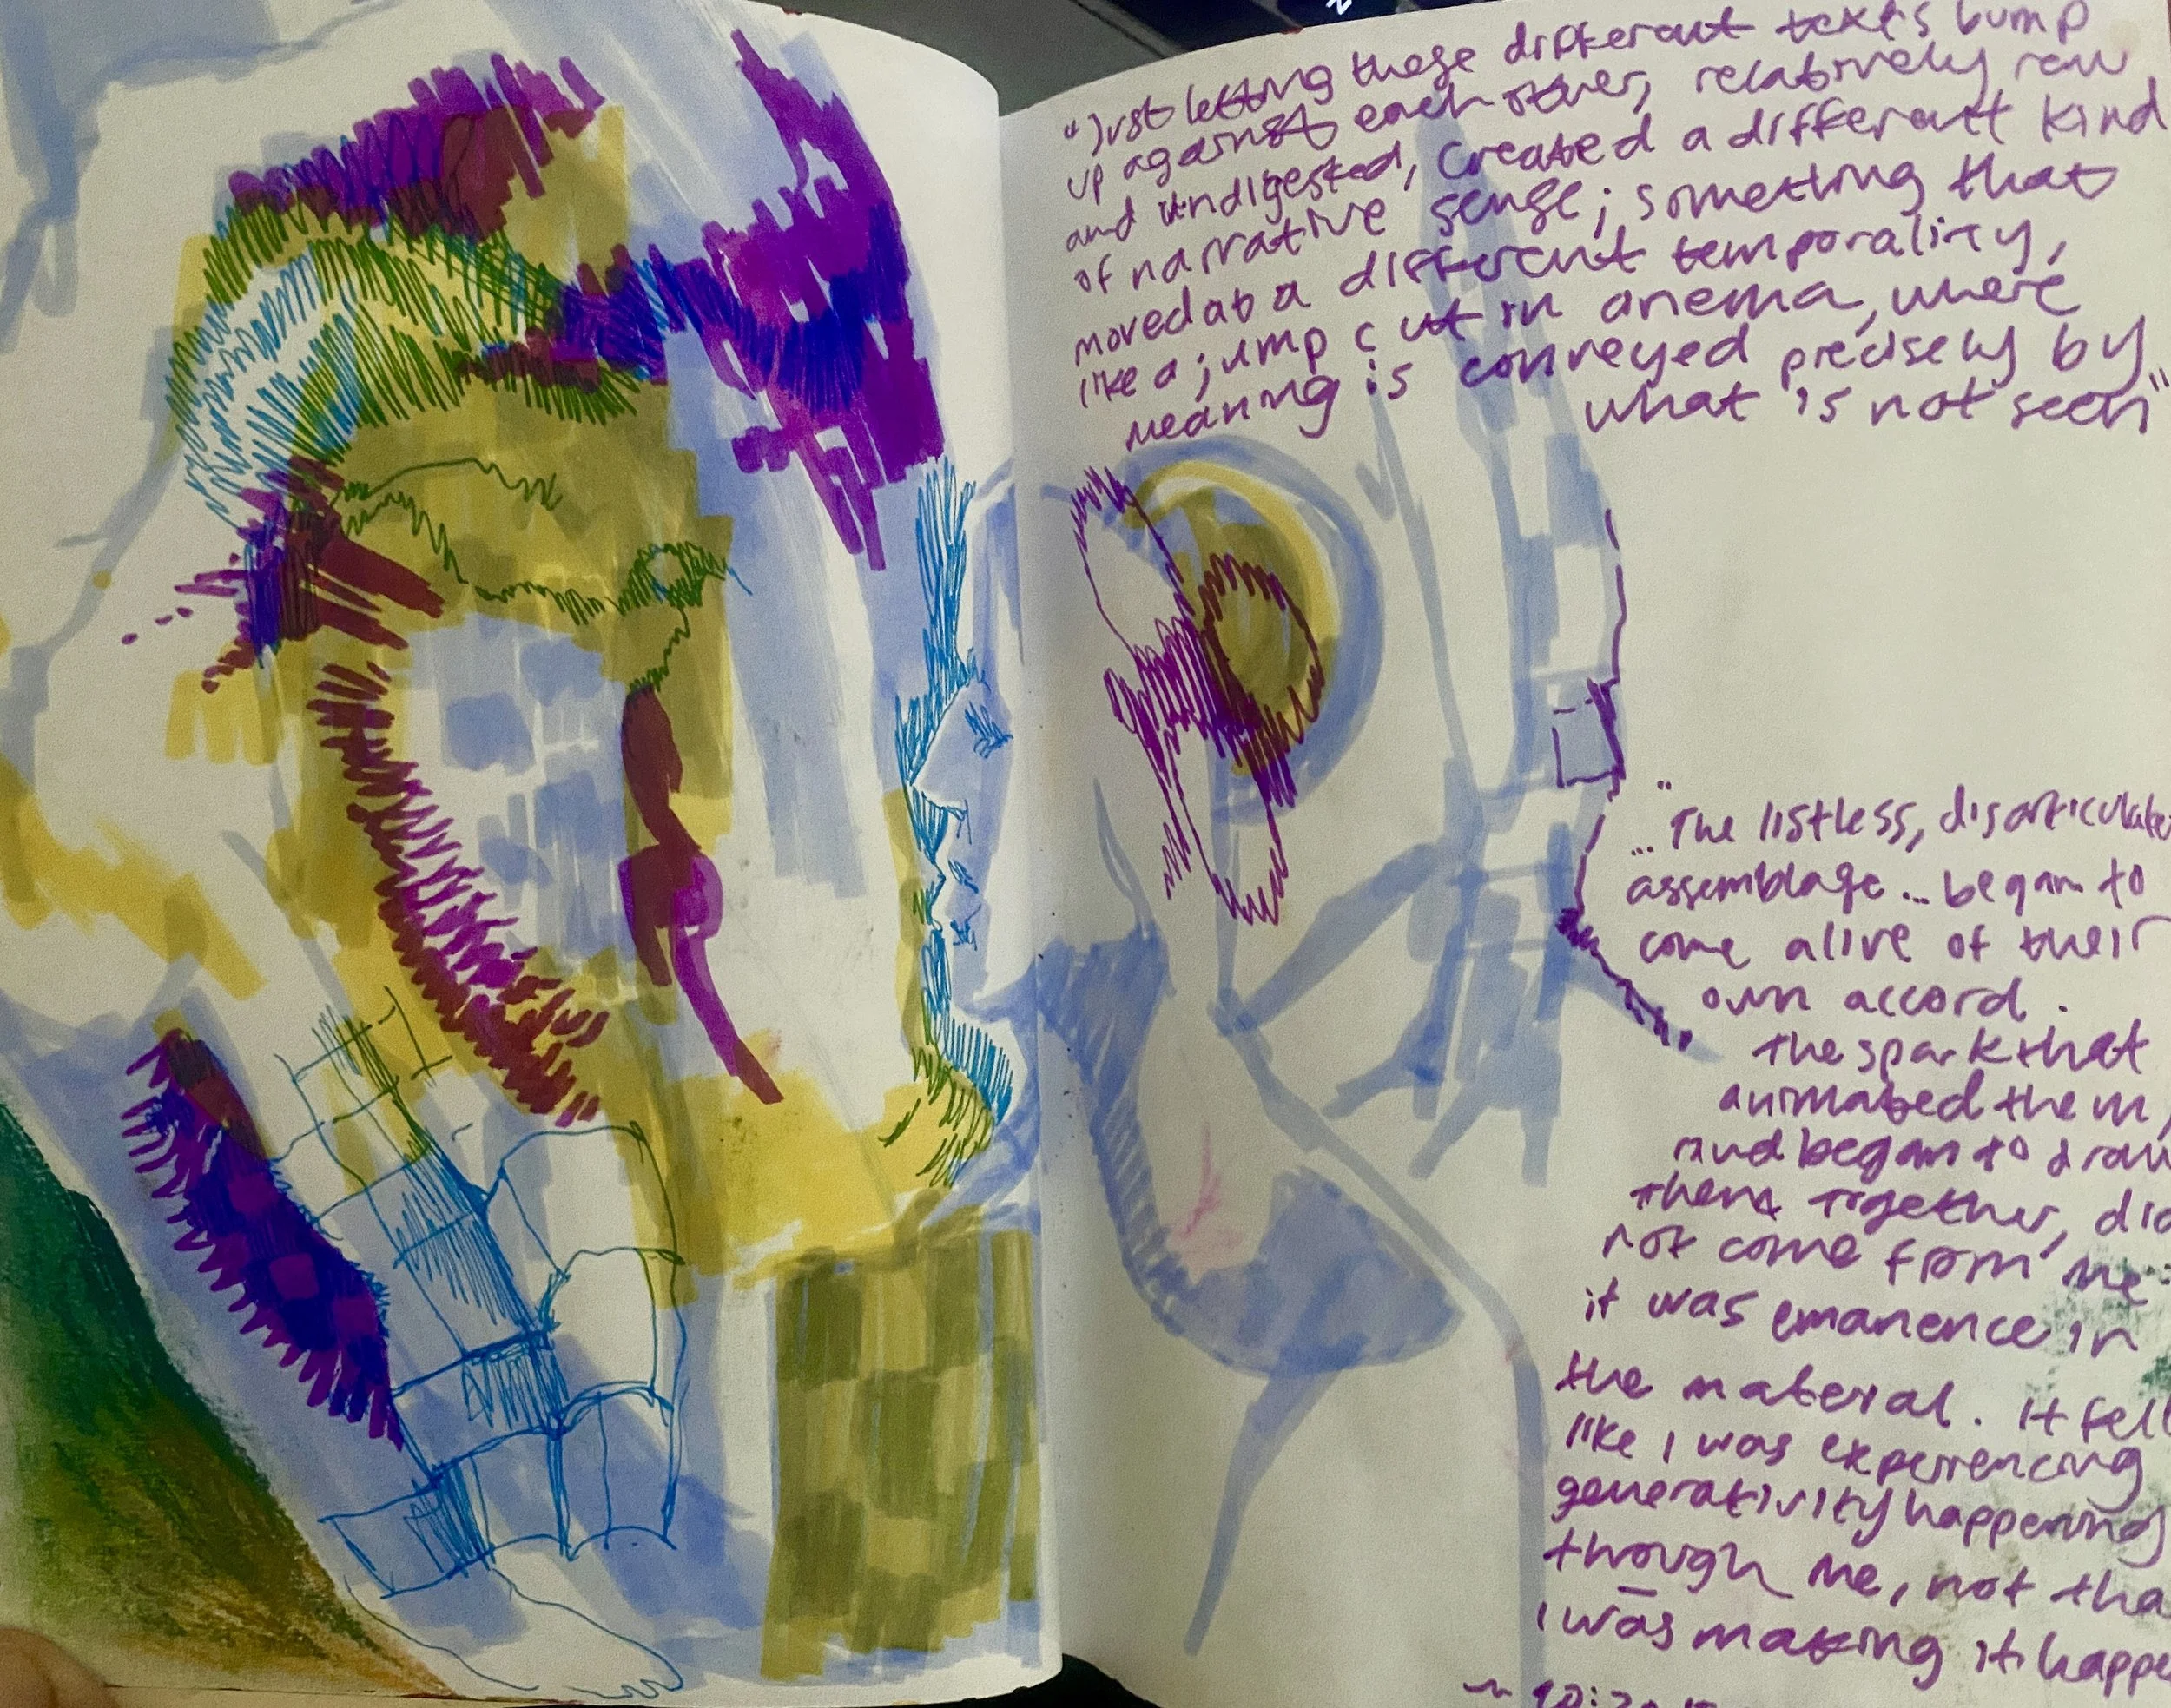 "Just letting these different texts bump
up against each other, relatively raw
and undigested, created a different kind
of narrative sense; something that
moved at a different temporality,
like a jump cut in cinema, where
meaning is conveyed precisely by
what is not seen"
"
... The listless, disarticulate
assemblage ... began to
come alive of their
own accord.
the spark that
animated them,
and began to draw
them together, did
not come from me
it was emanence in
the material. It fel
like I was experiencing
generativity happening
through me, not tha
I was making it happe